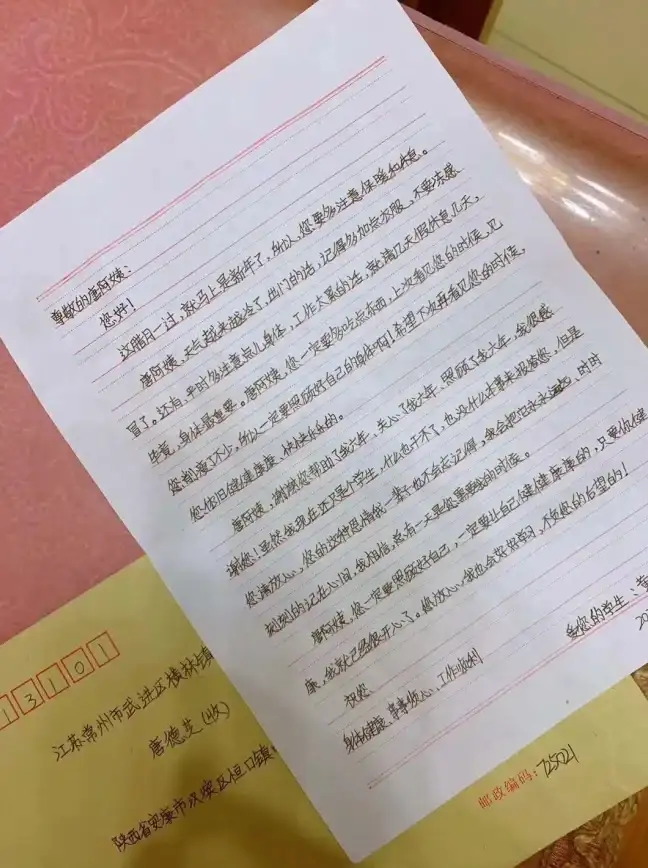 尊敬的唐阿姨:
您好!
这腊月一过,就马上是新年了,所以,您要多注意保暖和休息。
唐阿姨,天气越来越冷了,出门的话,记得多加点衣服,不要冻感
冒了。还有,平时多注意点儿身体,工作太累的话,就请几天假休息几天,
毕竟,身体最重要。唐阿姨,您一定要多吃点东西,上次看见您的时候,见
您都瘦了不少,所以一定要照顾好自己的身体啊!希望下次再看见您的时候,
您依旧健健康康、快快乐乐的。
唐阿姨,谢谢您帮助了我六年、关心了我六年、照顾了我六年,我很感
谢您!虽然我现在还只是个学生,什么也干不了,也没什么本事来报答您,但是
您请放心,您的这种恩情我一辈子也不会忘记得,我会把它永永远远、时时
刻刻的记在心里,我相信,总有一天是您需要我的时候。
唐阿姨,您一定要照顾好自己,一定要让自己健健康康的,只要你健
康,我就已经很开心了。您放心,我也会好好学习,不负您的希望的!
祝您
身体健康、事事顺心、工作顺利
您的学生:
202
13101
江苏常州市武进区横林镇
唐德芝(收)
陕西省安康市汉滨区恒口镇
邮政编码:725021